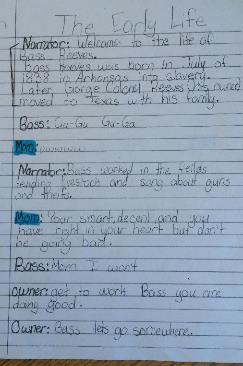 The Early Life
Narrator: Welcome to the life of
Bass Reeves.
Bass Reeves was born in July of
1838 in Arkansas into slavery.
Later, George Colonel Reeves his owned
moved to Texas with his family.
Bass: Gu-Gu Gu-Ga
Mom:
Narrator: Bass worked in the feilds
tending livestock and sang about guns
and thefts.
Mom: Your smart, decent, and you
have right in your heart but don't
be going bad.
Bass: Mom I won't
Owner: get to work Bass you are
doing good.
Owner: Bass lets go somewhere.